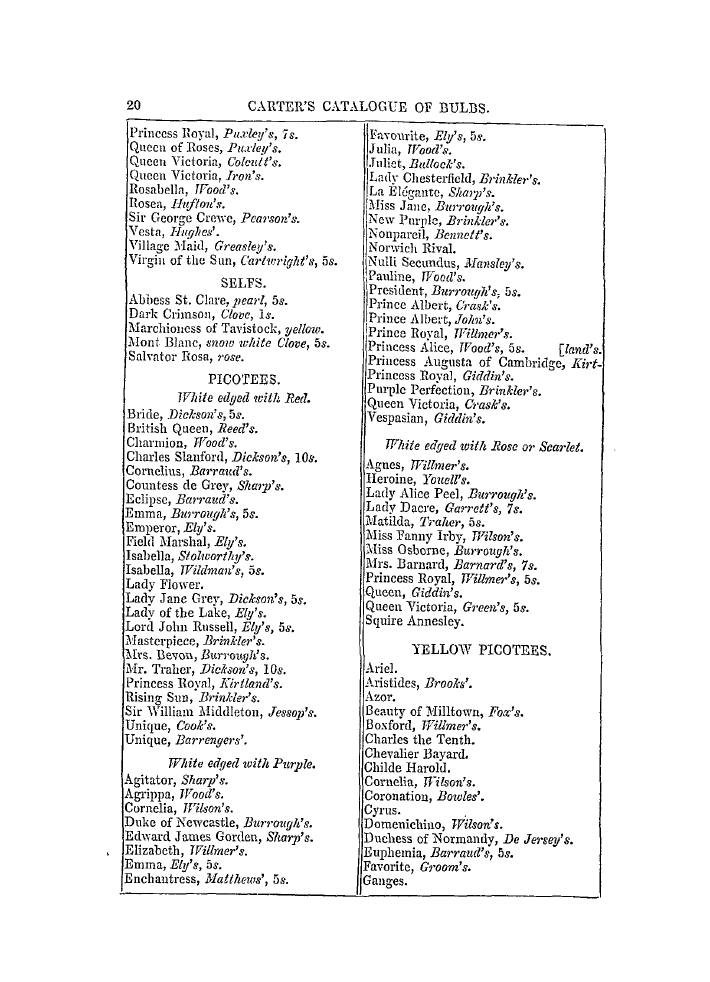 20 CARTER'S CATALOGUE OF BULBS.
Princess Royal, Puxley's, 7s.
Queen of Roses, Puxley's.
Queen Victoria, Colcutt's.
Queen Victoria, Iron's.
Rosabella, Wood's.
Rosea, Hufton's.
Sir George Crewe, Pearson's.
Vesta, Hughes'.
Village Maid, Greasley's.
Virgin of the Sun, Cartwright's, 5s.
SELFS.
Abbess St. Clare, pearl, 5s.
Dark Crimson, Clove, 1s.
Marchioness of Tavistock, yellow.
Mont Blanc, snow white Clove, 5s.
Salvator Rosa, rose.
PICOTEES.
White edged with Red.
Bride, Dickson's, 5s.
British Queen, Reed's.
Charmion, Wood's.
Charles Stanford, Dickson's, 10s.
Cornelius, Barraud's.
Countess de Grey, Sharp's.
Eclipse, Barraud's.
Emma, Burrough's, 5s.
Emperor, Ely's.
Field Marshal, Ely's.
Isabella, Stolworthy's.
Isabella, Wildman's, 5s.
Lady Flower.
Lady Jane Grey, Dickson's, 5s.
Lady of the Lake, Ely's.
Lord John Russell, Ely's, 5s.
Masterpiece, Brinkler's.
Mrs. Bevon, Burrough's.
Mr. Traher, Dickson's, 10s.
Princess Royal, Kirtland's.
Rising Sun, Brinkler's.
Sir William Middleton, Jessop's.
Unique, Cook's.
Unique, Barrengers'.
White edged with Purple.
Agitator, Sharp's.
Agrippa, Wood's.
Cornelia, Wilson's.
Duke of Newcastle, Burrough's.
Edward James Gorden, Sharp's.
Elizabeth, Willmer's.
Emma, Ely's, 5s.
Enchantress, Matthews', 5s.
Favourite, Ely's, 5s.
Julia, Wood's.
Juliet, Bullock's.
Lady Chesterfield, Brinkler's.
La Élégante, Sharp's.
Miss Jane, Burrough's.
New Purple, Brinkler's.
Nonpareil, Bennett's.
Norwich Rival.
Nulli Secundus, Mansley's.
Pauline, Wood's.
President, Burrough's, 5s.
Prince Albert, Crask's.
Prince Albert, John's.
Prince Royal, Willmer's.
Princess Alice, Wood's, 5s. [land's.
Princess Augusta of Cambridge, Kirt-
Princess Royal, Giddin's.
Purple Perfection, Brinkler's.
Queen Victoria, Crask's.
Vespasian, Giddin's.
White edged with Rose or Scarlet.
Agnes, Willmer's.
Heroine, Youell's.
Lady Alice Peel, Burrough's.
Lady Dacre, Garrett's, 7s.
Matilda, Traher, 5s.
Miss Fanny Irby, Wilson's.
Miss Osborne, Burrough's.
Mrs. Barnard, Barnard's, 7s.
Princess Royal, Willmer's, 5s.
Queen, Giddin's.
Queen Victoria, Green's, 5s.
Squire Annesley.
YELLOW PICOTEES.
Ariel.
Aristides, Brooks'.
Azor.
Beauty of Milltown, Fox's.
Boxford, Willmer's.
Charles the Tenth.
Chevalier Bayard.
Childe Harold.
Cornelia, Wilson's.
Coronation, Bowles'.
Cyrus.
Domenichino, Wilson's.
Duchess of Normandy, De Jersey's.
Euphemia, Barraud's, 5s.
Favorite, Groom's.
Ganges.